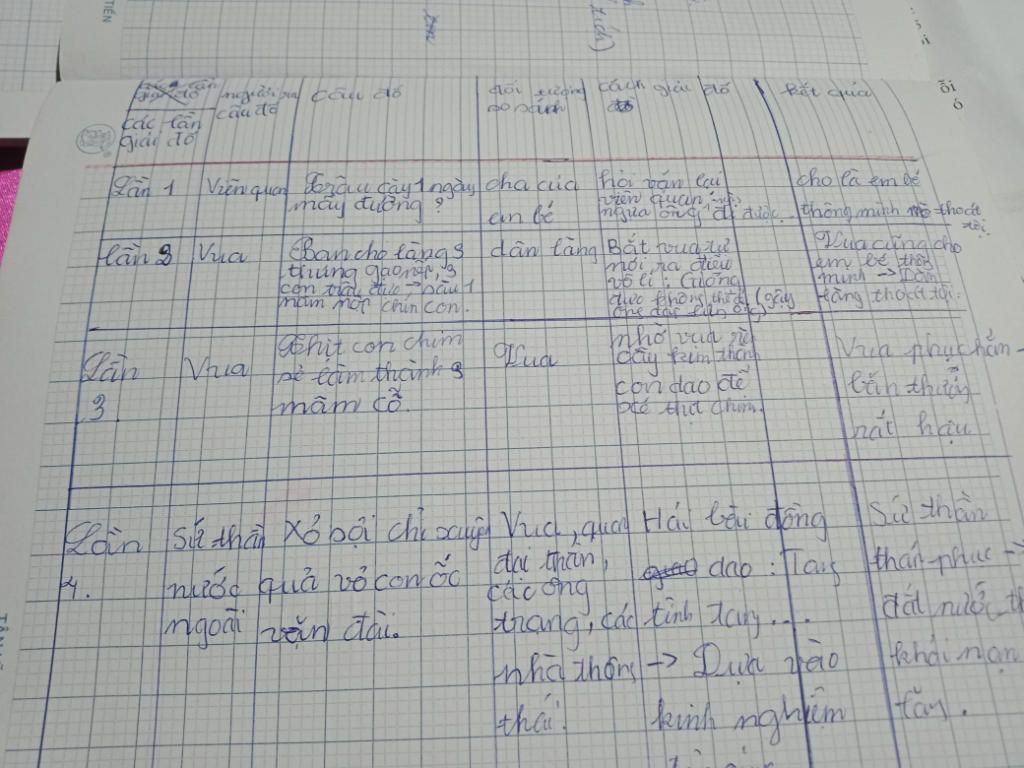 TIẾN
các lần giải đố
người ra câu đố
câu đố
đối tượng so sánh
cách giải đố
kết quả
Lần 1
Viên quan
Trâu cày 1 ngày
mấy đường?
cha của
em bé
hỏi vặn lại
viên quan
ngựa ông đi được..
cho là em bé
thông minh
thoát tội.
lần 2
Vua
Ban cho làng 3
thúng gạo nếp, 3
con trâu đực → sau 1
năm một chín con.
dân làng
Bắt vua tự
nói ra điều
vô lí: Giống
đực không thể
Vua cũng cho
em bé thông
minh → Dân
làng thoát tội.
Lần
3
Vua
Thịt con chim
sẻ làm thành 3
mâm cỗ.
Vua
nhờ vua rèn
cây kim thành
con dao để
xẻ thịt chim.
Vua phục hẳn -
bắn thưởng
rất hậu
Lần
4.
Sứ thần
nước
ngoài
Xỏ sợi chỉ xuyên
quả vỏ con ốc
vặn dài.
Vua, quan
đại thần,
các ông
trạng, các
nhà thông
thái.
Hát bài đồng
dao: Tang
tình tang....
→ Dựa vào
kinh nghiệm
Sứ thần
thán phục →
đất nước th
khỏi nạn
lăng.